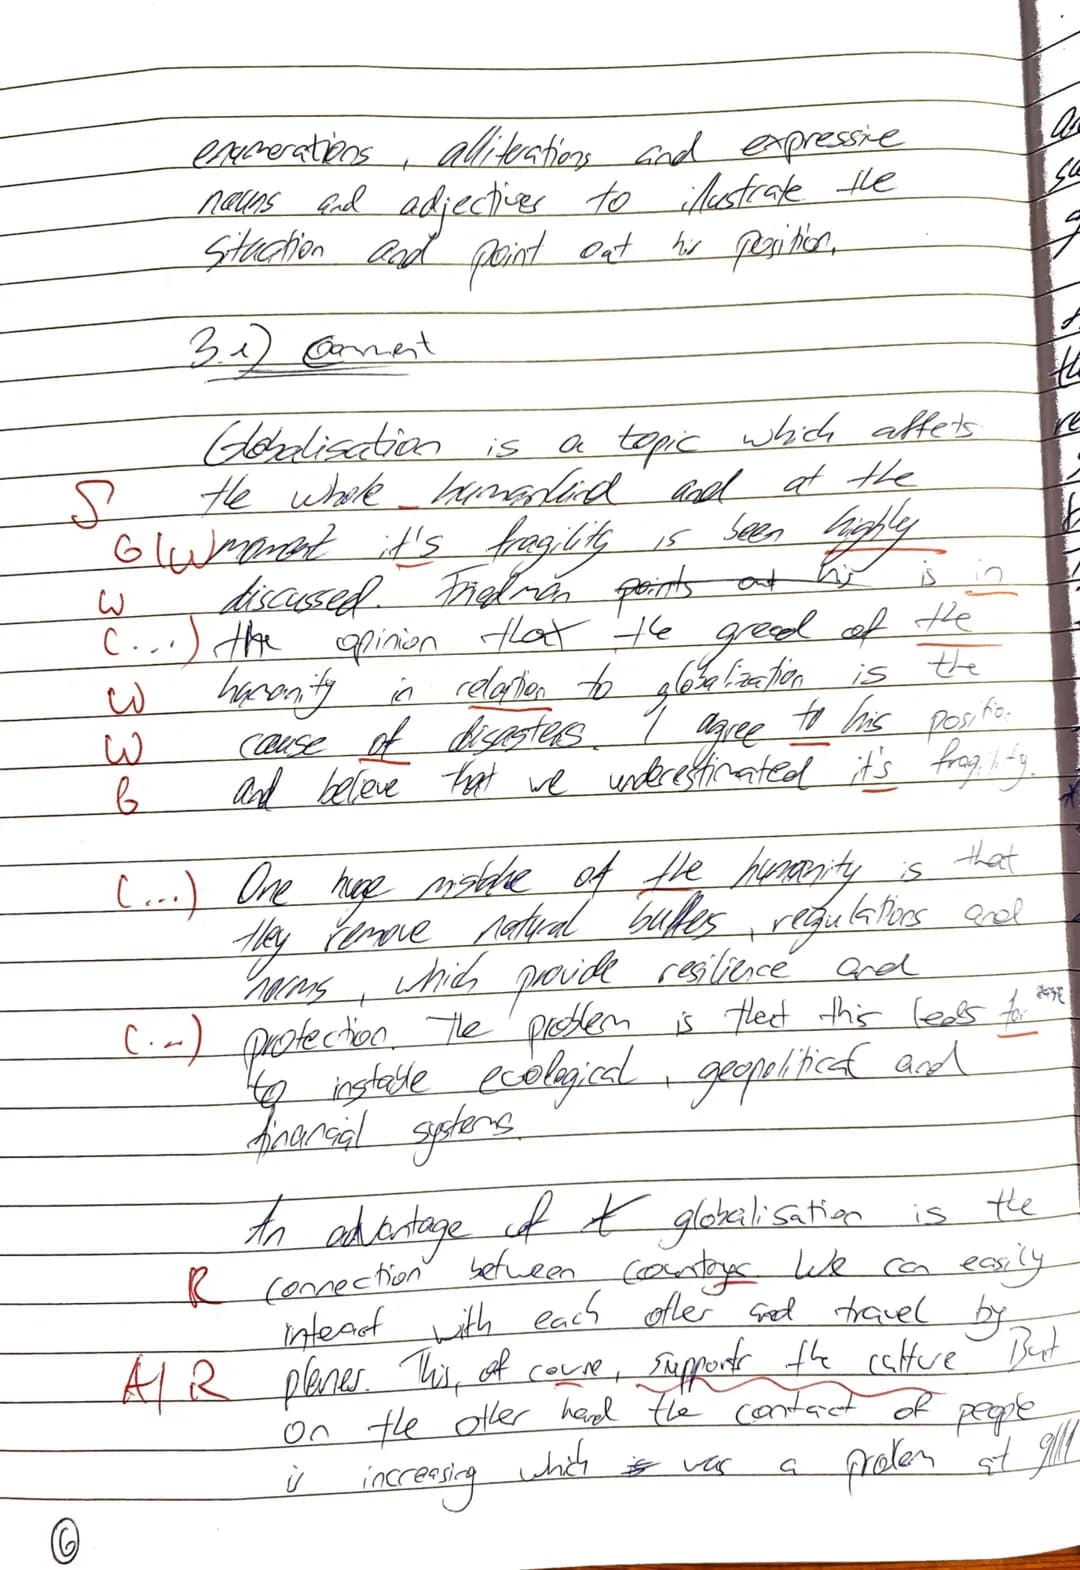 enumerations, alliterations and expressive
nouns and adjectives to illustrate the
situation and point out his position.
3.1) Comment
Globalisation is a topic which affets
S the whole humankind and at the
G (W) moment it's fragility is been highly
W discussed. Friedman points out his is in
(...) the opinion that the greed of the
W humanity in relartion to globalization is the
W cause of disasters. I agree to his positio.
G and believe that we underestimated it's fragility.
(...) One huge mistake of the humanity is that
they remove natural buffers, regulations and
norms, which provide resilience and
(...) protection. The problem is that this leeds for
to instable ecological, geopolitical and
financial systems.
An advantage of globalisation is the
R connection between countrys We can easily
interact with each other and travel by
A/R planes. This, of course, supports the calture But
on the other hand the contact of people
is increasing which is was a prolem at
6